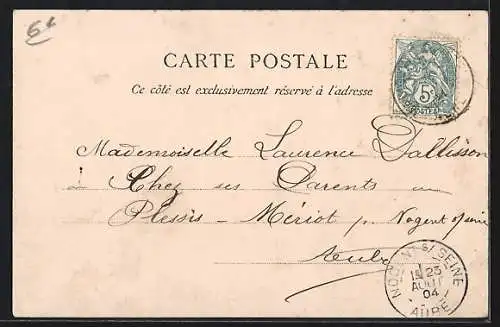 6€
CARTE POSTALE
Ce côté est exclusivement réservé à l'adresse
5c
POSTES
Mademoiselle Laurence Gallisson
Chez ses Parents au
Plessis - Mériot pr Nogent s/Seine
Aube
NOGENT S/ SEINE
23
AOUT
04
AUBE